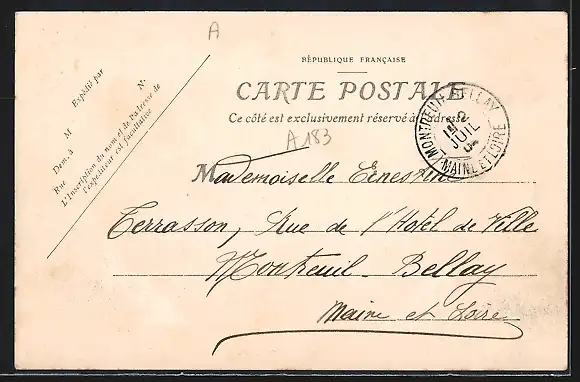 A
RÉPUBLIQUE FRANÇAISE
CARTE POSTALE
Ce côté est exclusivement réservé à l'adresse
Expédié par
M
N°
Dem. à
Rue
L'Inscription du nom et de l'adresse de
l'expéditeur est facultative
A183
MONTREUIL-BELLAY
12
JUIL
04
MAINE ET LOIRE
Mademoiselle Ernestine
Terrasson, Rue de l'Hotel de Ville
Montreuil-Bellay
Maine et Loire